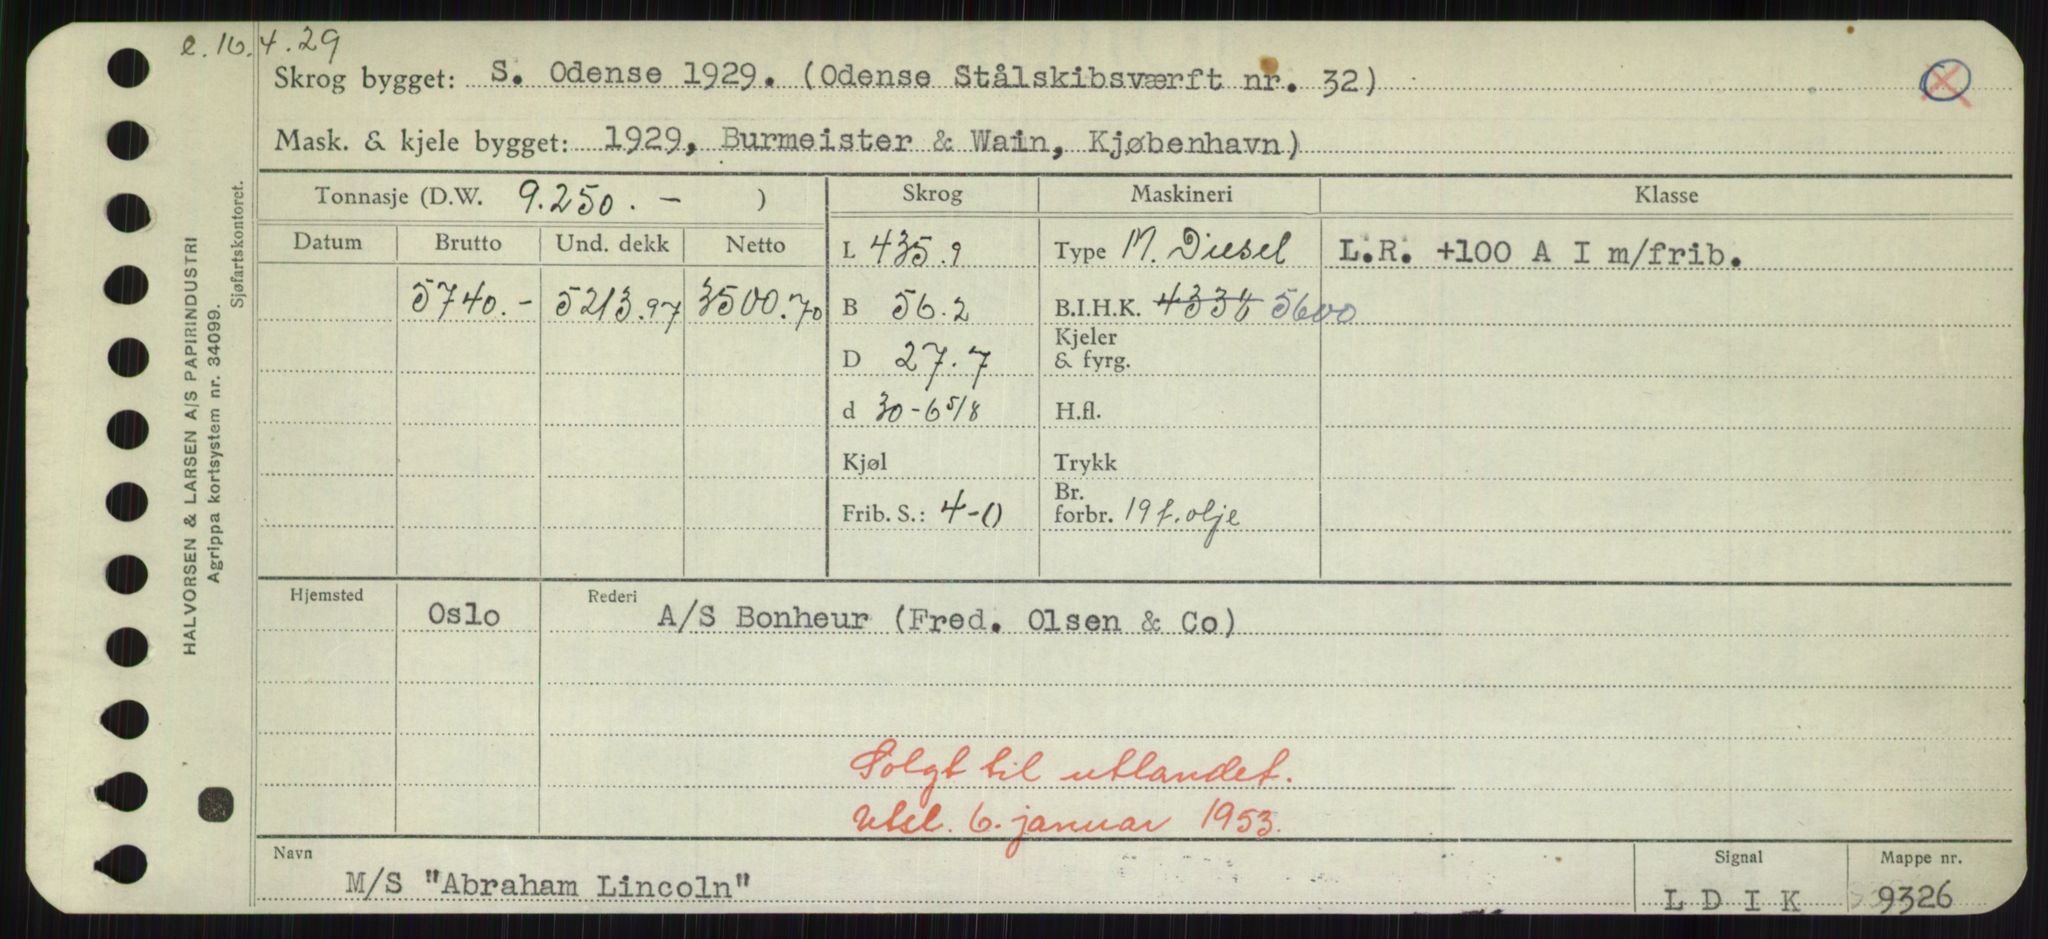 e. 10. 4. 29
Skrog bygget: S. Odense 1929. (Odense Stålskibsværft nr. 32)
Mask. & kjele bygget: 1929, Burmeister & Wain, Kjøbenhavn)
Tonnasje (D.W. 9.250. - ) Skrog Maskineri Klasse
Datum Brutto Und. dekk Netto L 435.9 Type M. Diesel L.R. +100 A I m/frib.
5740.- 5213.97 3500.70 B 56.2 B.I.H.K. 4334 5600
Kjeler
D 27.7 & fyrg.
d 30-6 5/8 H.fl.
Kjøl Trykk
Br.
Frib. S.: 4-0 forbr. 19 t. olje
Hjemsted Rederi
Oslo A/S Bonheur (Fred. Olsen & Co)
Solgt til utlandet.
Utsl. 6. januar 1953.
Navn Signal Mappe nr.
M/S "Abraham Lincoln" L D I K 9326
HALVORSEN & LARSEN A/S PAPIRINDUSTRI
Agrippa kortsystem nr. 34099.
Sjøfartskontoret.